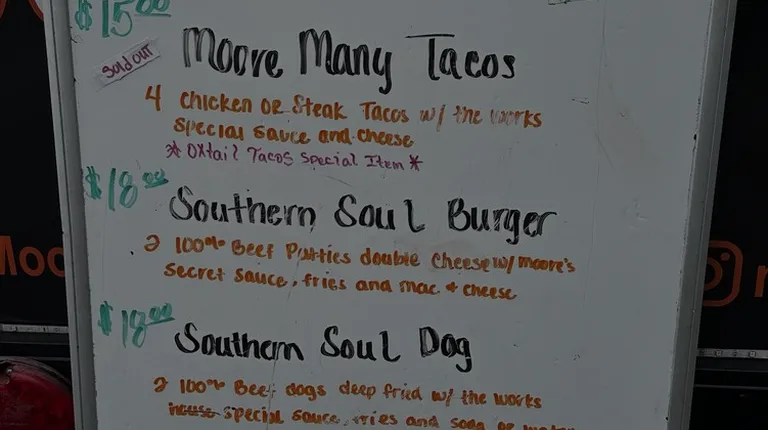 $15.00
SOLD OUT
Moore Many Tacos
4 Chicken or Steak Tacos w/ the works
Special Sauce and Cheese
* Oxtail Tacos Special Item *
$18.00
Southern Soul Burger
2 100% Beef Patties double Cheese w/ Moore's
Secret Sauce, fries and mac & cheese
$18.00
Southern Soul Dog
2 100% Beef dogs deep fried w/ the works
special sauce, fries and soda or water
Moo